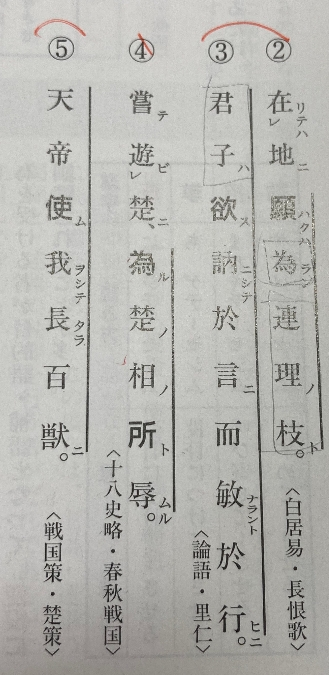 ② 在リテハレ地ニ願ハクハ為ラン連理ノ枝ト。〈白居易・長恨歌〉
③ 君子ハ欲ス訥ニシテ於言ニ而敏ナラント於行ヒニ。〈論語・里仁〉
④ 嘗テ遊ビレ楚ニ、為ル楚ノ相ノ所ト辱ムル。〈十八史略・春秋戦国〉
⑤ 天帝使ム我ヲシテ長タラ百獣ニ。〈戦国策・楚策〉